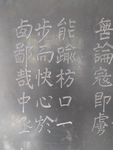 無論寇即虜
能踰枋口一
步而快心於
卤鄙哉中丞